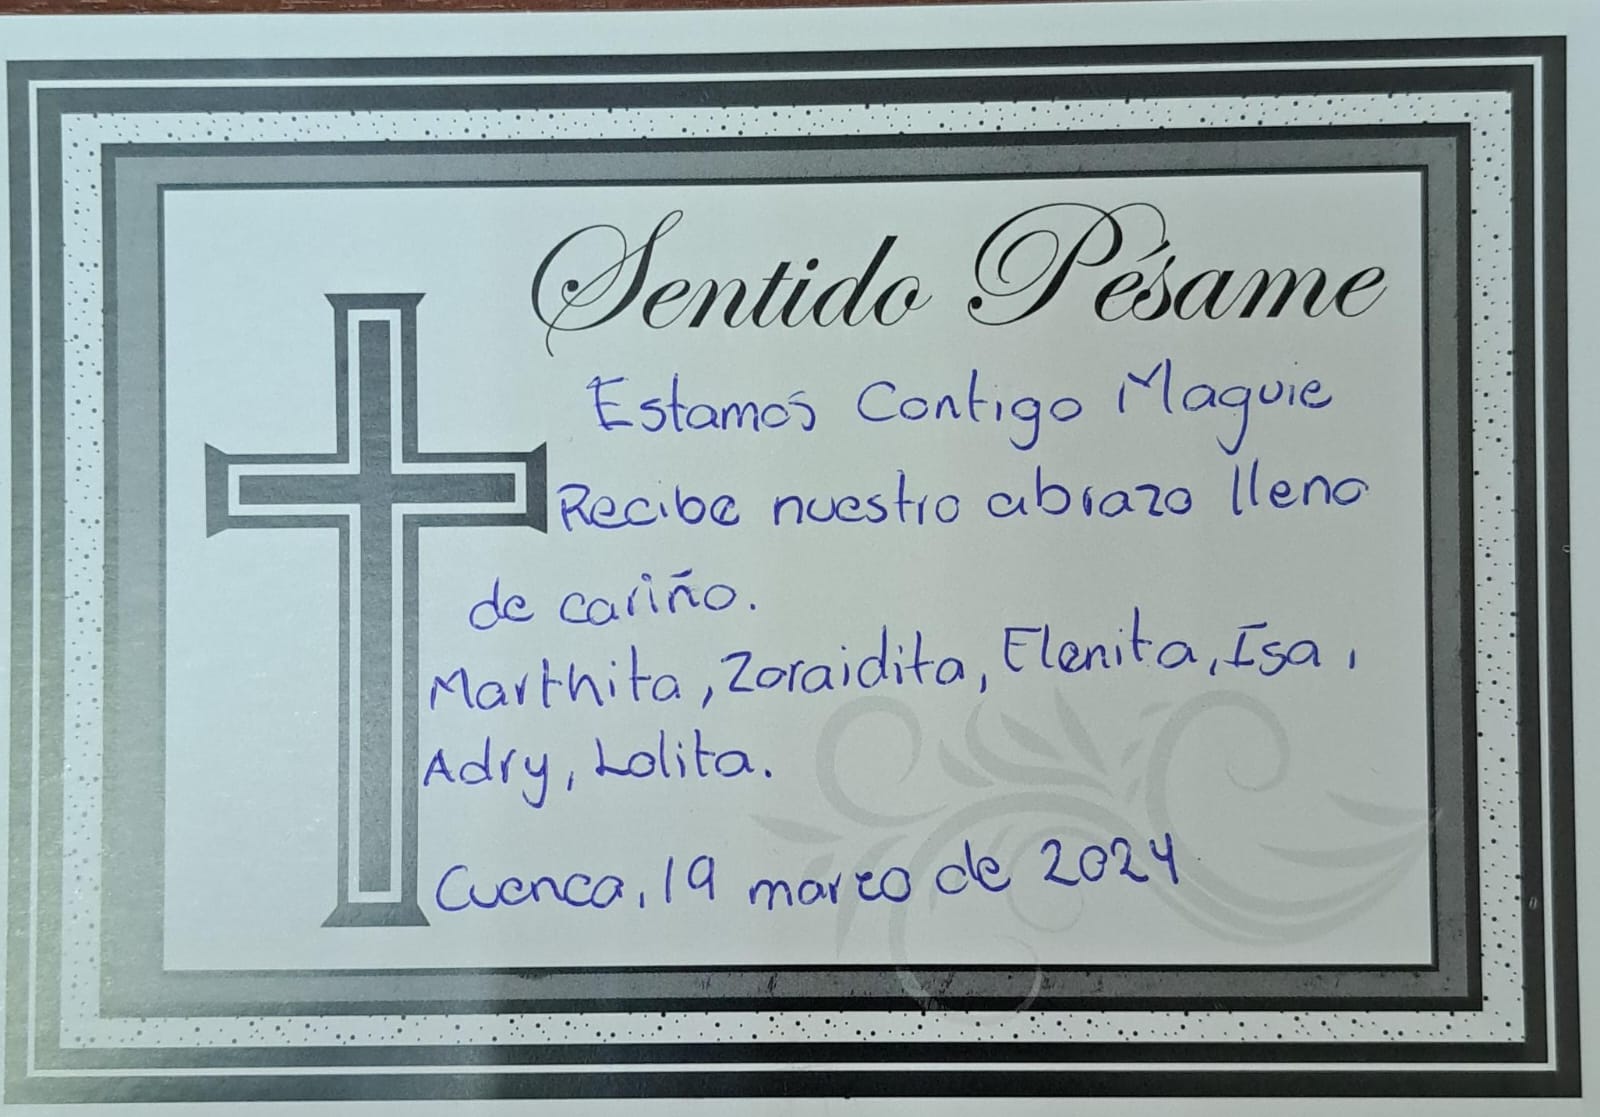 Sentido Pésame
Estamos Contigo Maguie
Recibe nuestro abrazo lleno
de cariño.
Marthita, Zoraidita, Elenita, Isa,
Adry, Lolita.
Cuenca, 19 marzo de 2024